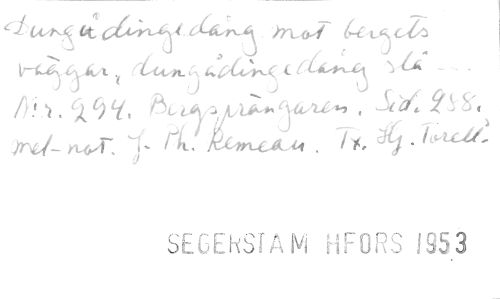 Dungådingedång mot bergets
väggar, dungådingedång slå ...
N:r. 294. Bergsprängaren. Sid. 288.
mel-not. J. Ph. Remeau. Tx. Hj. Torell.
SEGERSTAM HFORS 1953